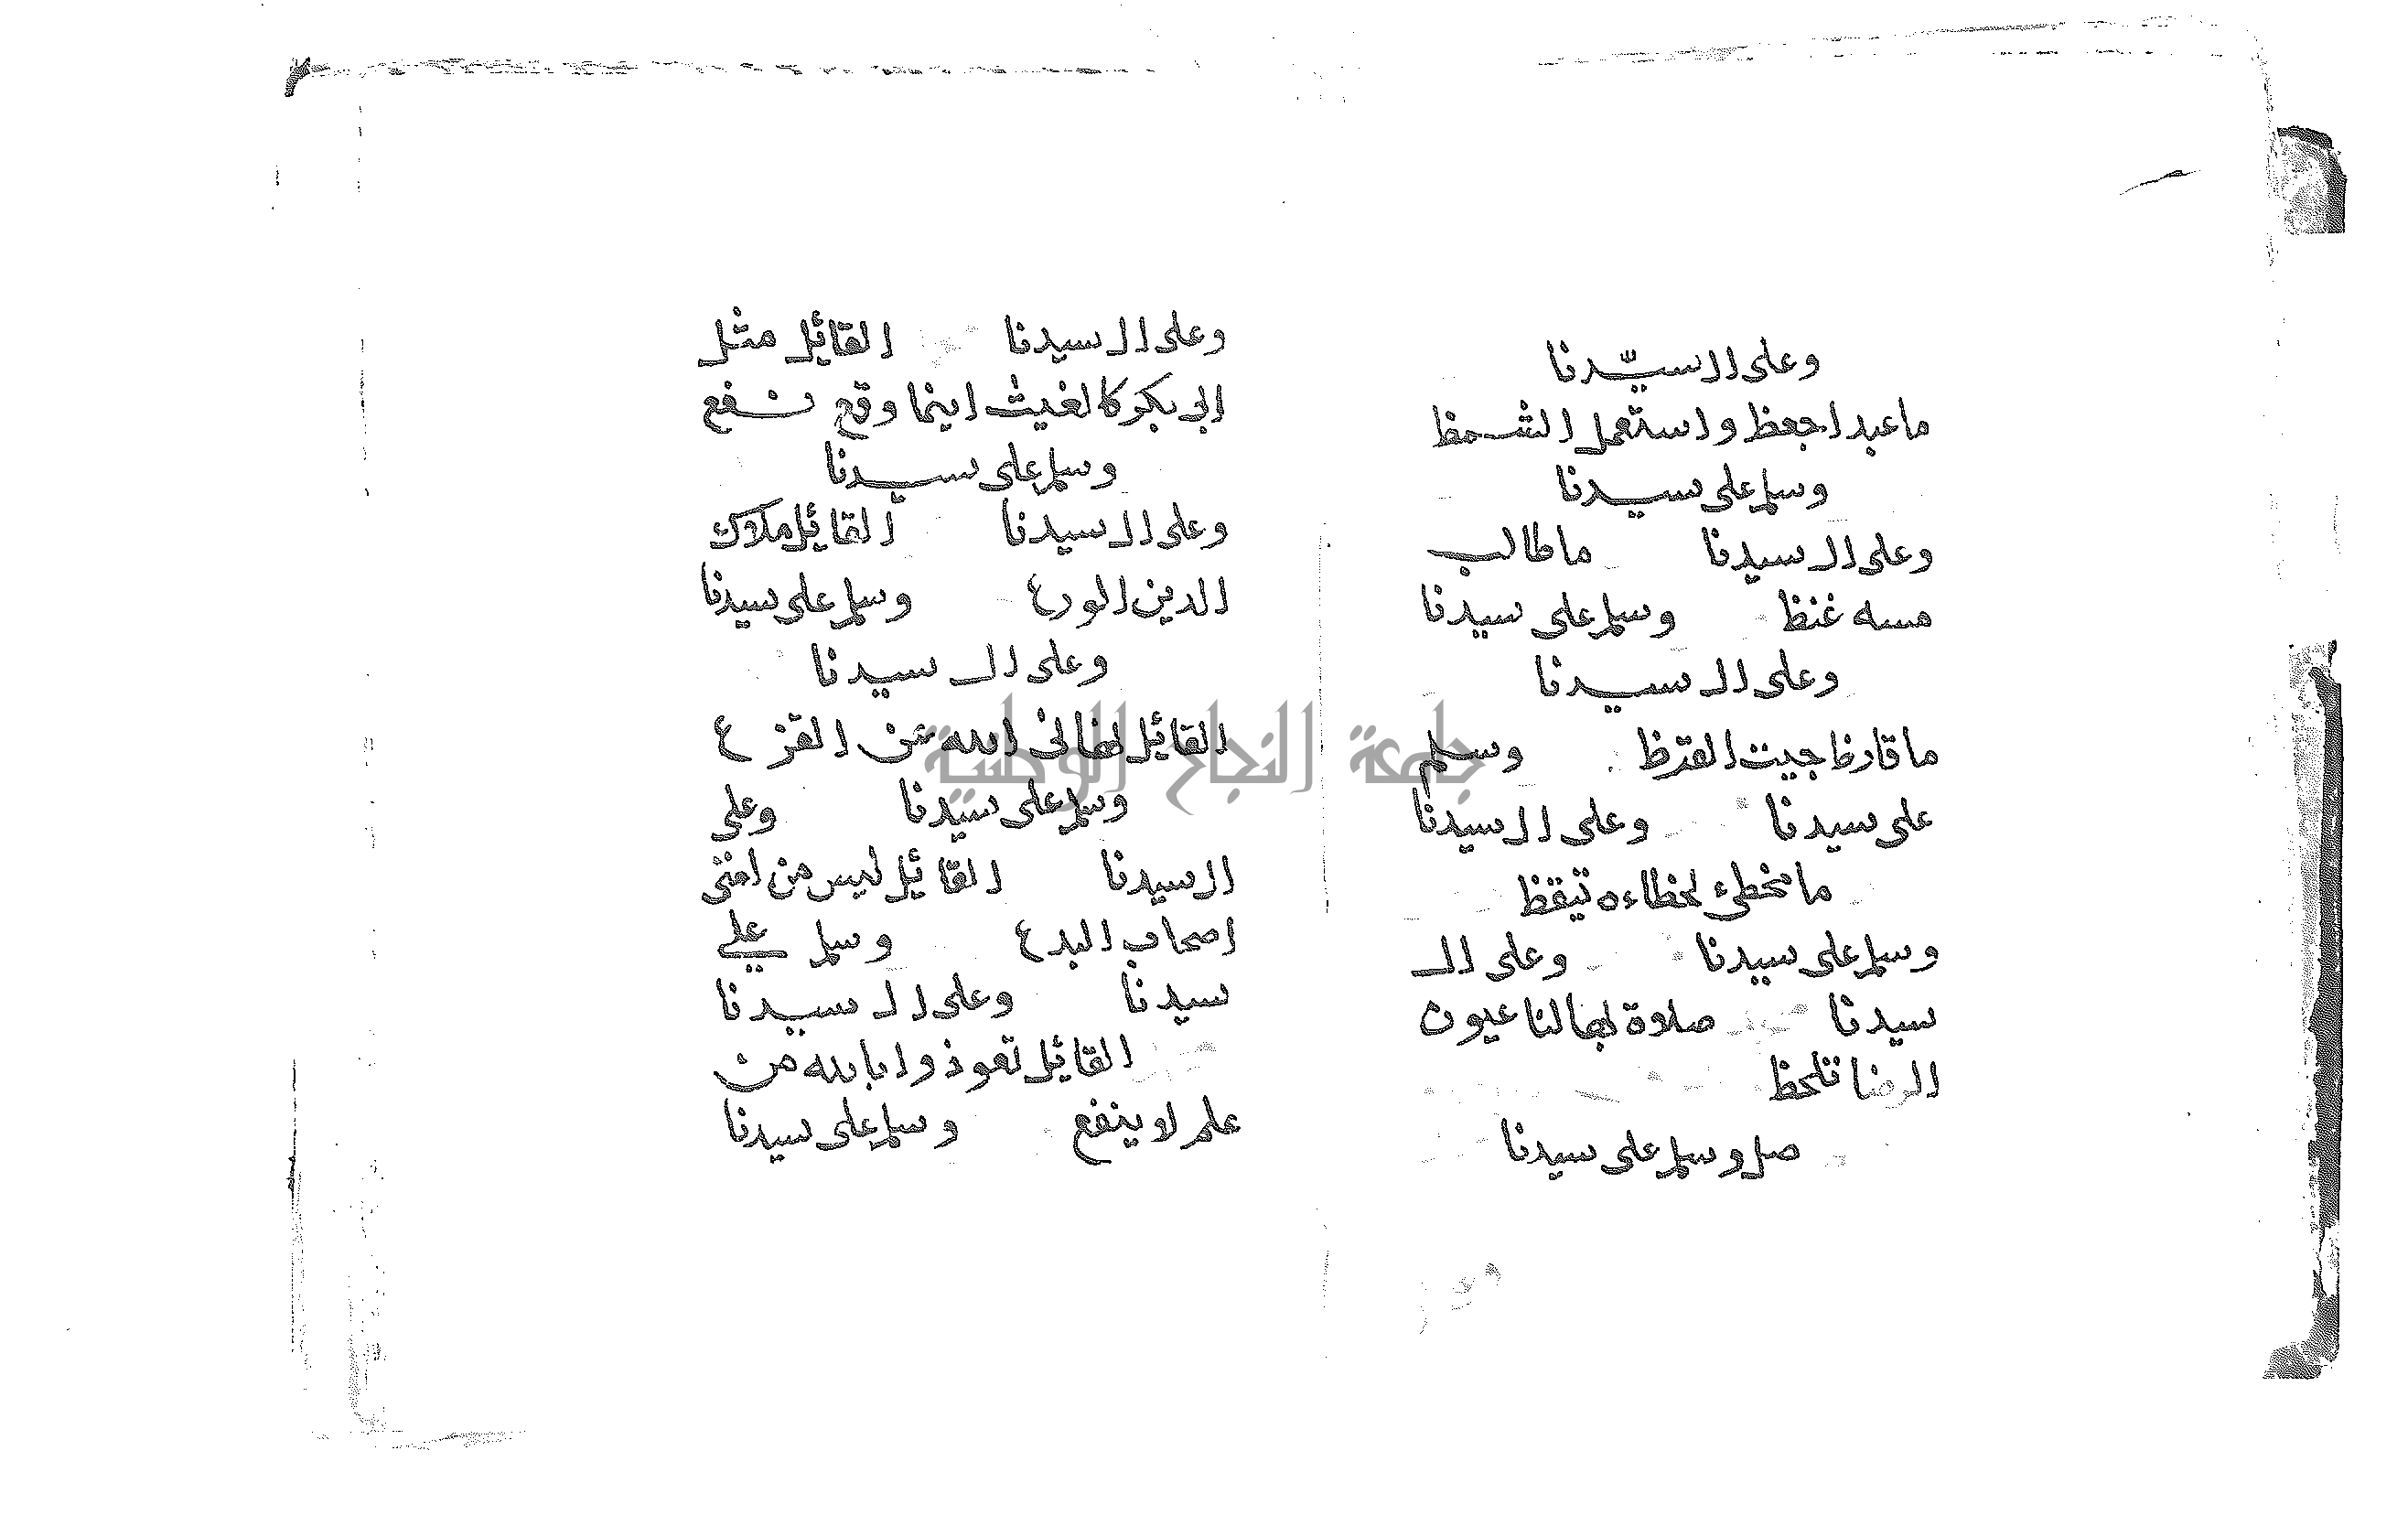 وعلى ال سيّدنا
ما عبد اجعظ واستعمل الشمظ
وسلم على سيدنا
وعلى ال سيدنا ما طالب
مسه غنظ وسلم على سيدنا
وعلى ال سيدنا
ما قارظ جيت القرظ وسلم
على سيدنا وعلى ال سيدنا
ما مخطئ لخطاءه تيقظ
وسلم على سيدنا وعلى ال
سيدنا صلاة بها لنا عيون
الرضا تلحظ
صل وسلم على سيدنا
وعلى ال سيدنا القائل مثل
ابى بكر كالغيث اينما وقع نفع
وسلم على سيدنا
وعلى ال سيدنا القائل ملاك
الدين الورع وسلم على سيدنا
وعلى ال سيدنا
القائل نهانى الله عن القزع
وسلم على سيدنا وعلى
ال سيدنا القائل ليس من امتى
اصحاب البدع وسلم على
سيدنا وعلى ال سيدنا
القائل تعوذوا بالله من
علم لا ينفع وسلم على سيدنا
جامعة النجاح الوطنية